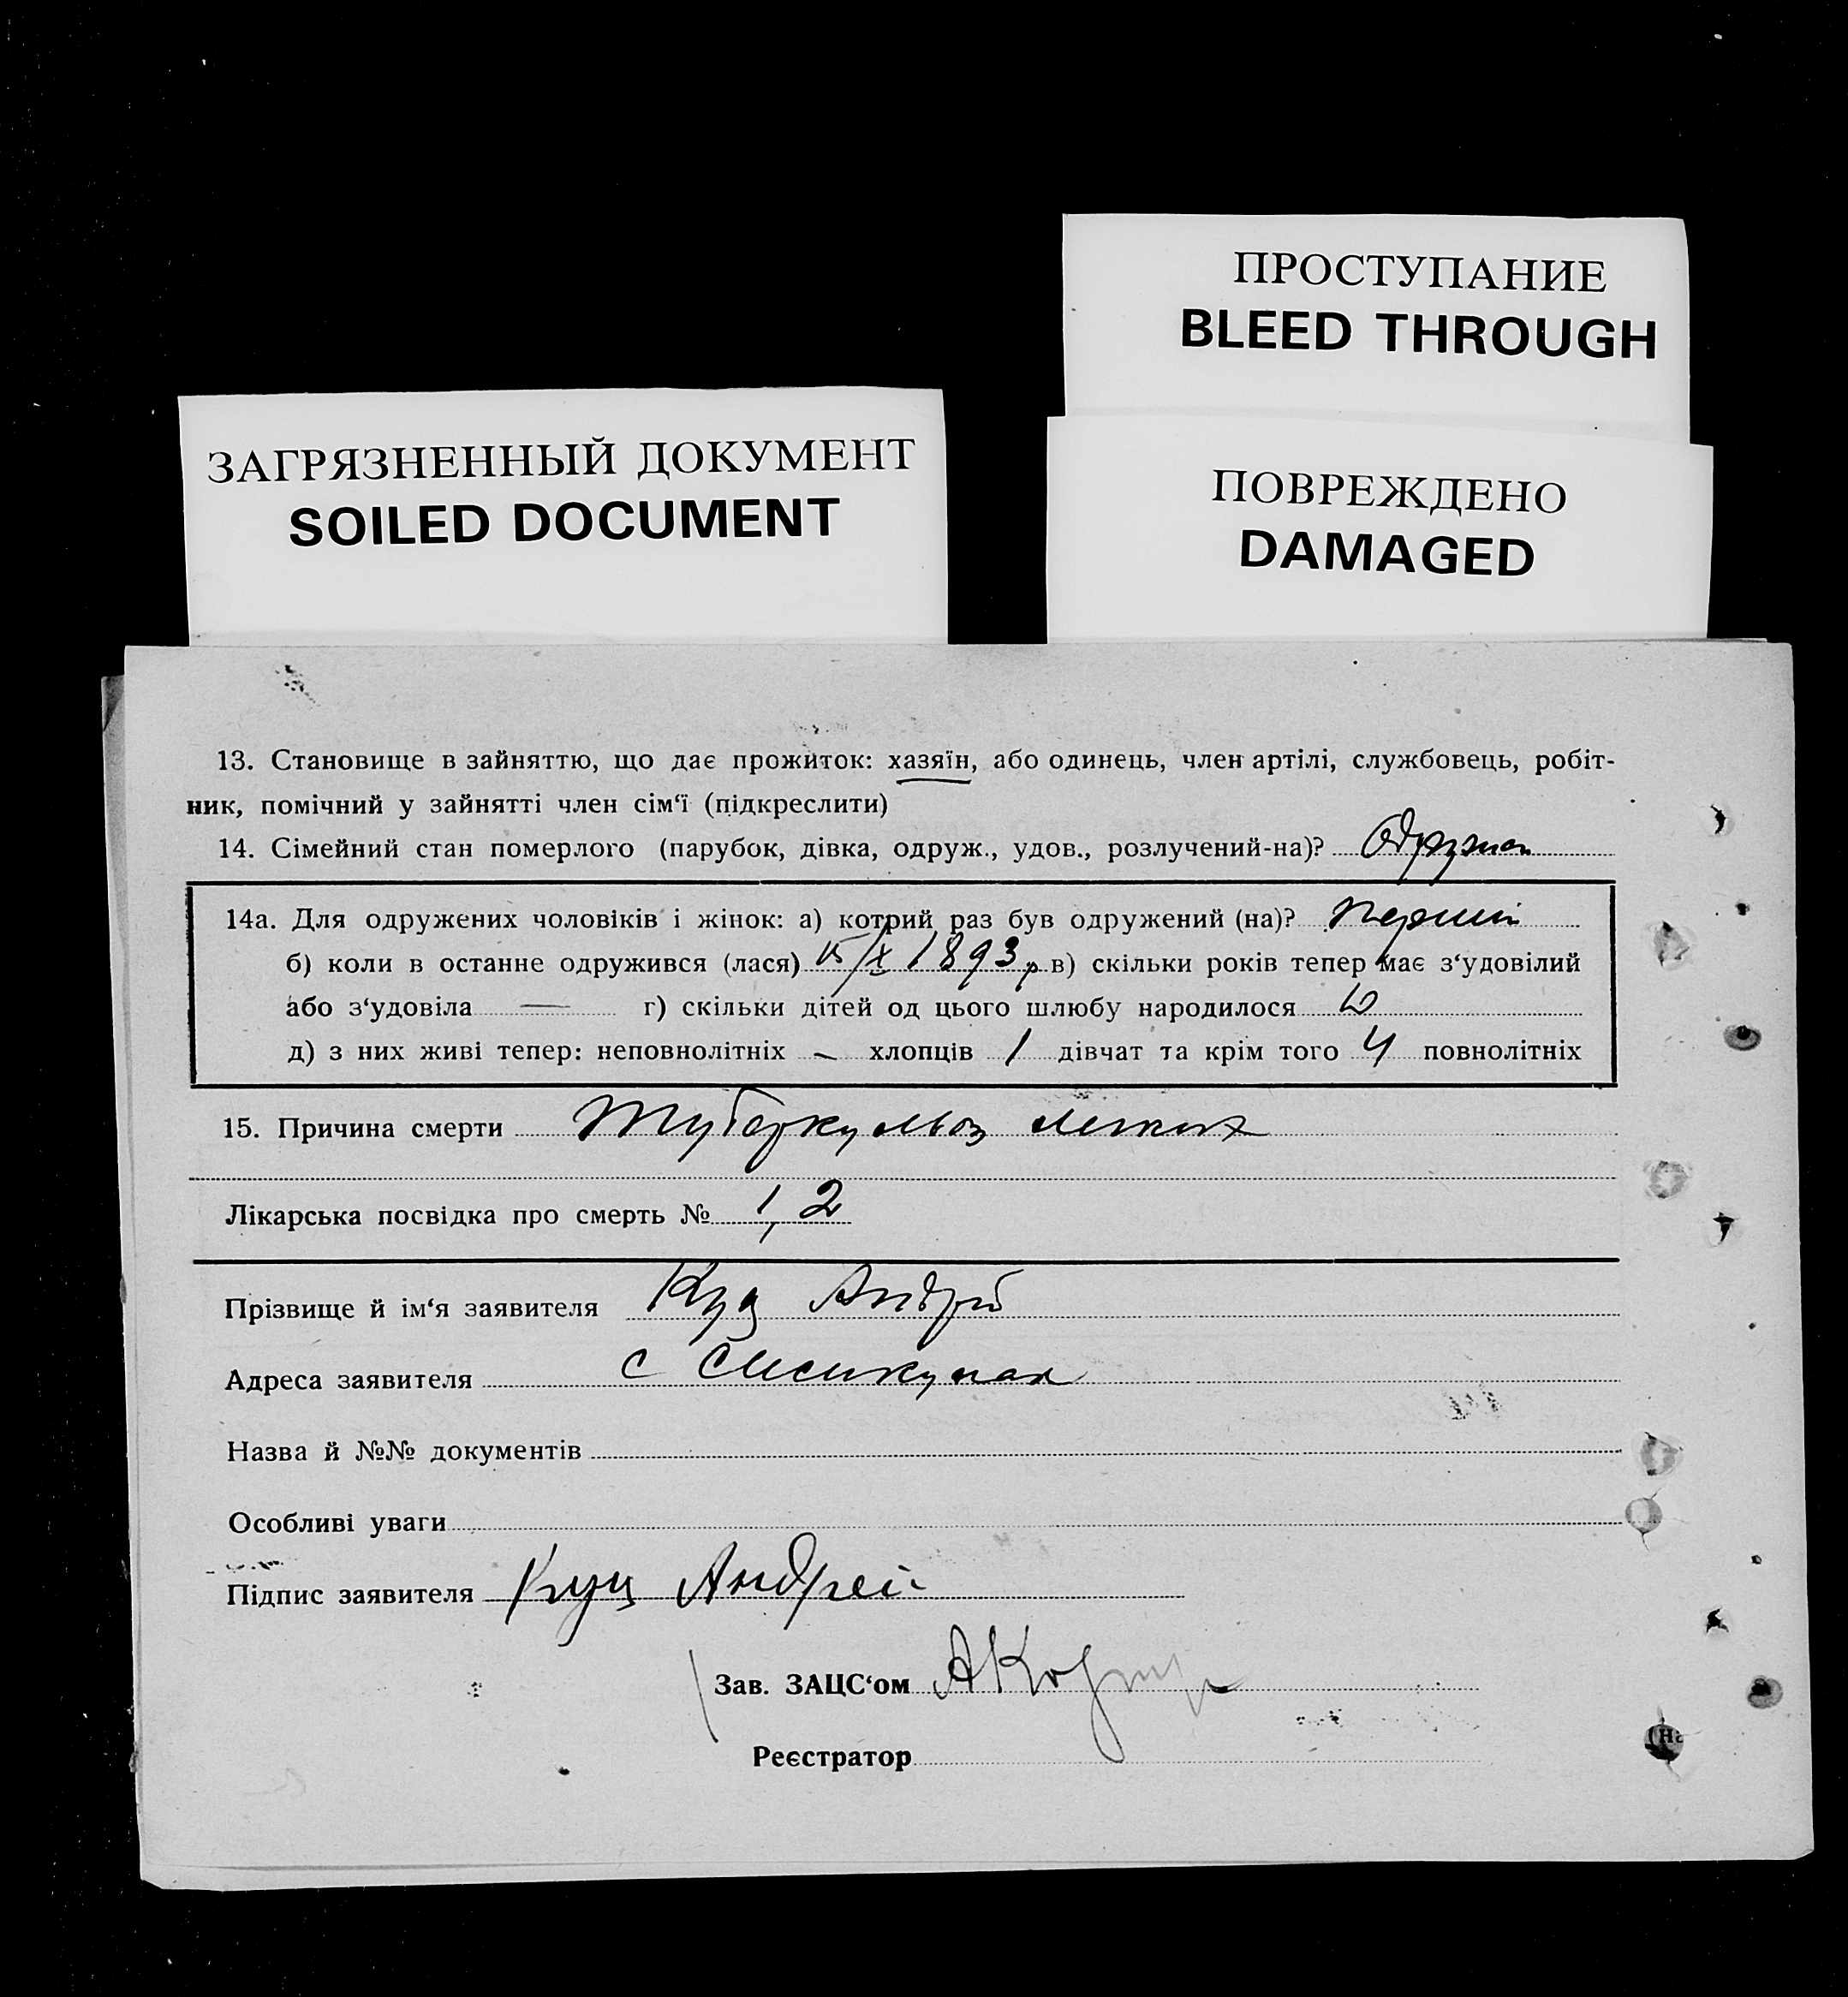 ПРОСТУПАНИЕ
BLEED THROUGH
ЗАГРЯЗНЕННЫЙ ДОКУМЕНТ
SOILED DOCUMENT
ПОВРЕЖДЕНО
DAMAGED
13. Становище в зайняттю, що дає прожиток: хазяїн, або одинець, член артілі, службовець, робіт-
ник, помічний у зайнятті член сім‘ї (підкреслити)
14. Сімейний стан померлого (парубок, дівка, одруж., удов., розлучений-на)?
14а. Для одружених чоловіків і жінок: а) котрий раз був одружений (на)? перший
б) коли в останне одружився (лася) 15/X 1893 р в) скільки років тепер має з‘удовілий
або з‘удовіла — г) скільки дітей од цього шлюбу народилося
д) з них живі тепер: неповнолітніх – хлопців 1 дівчат та крім того 4 повнолітніх
15. Причина смерти Туберкульоз легких
Лікарська посвідка про смерть № 12
Прізвище й ім‘я заявителя Куц Андрій
Адреса заявителя с
Назва й №№ документів
Особливі уваги
Підпис заявителя Куц Андрей
Зав. ЗАЦС‘ом
Реєстратор